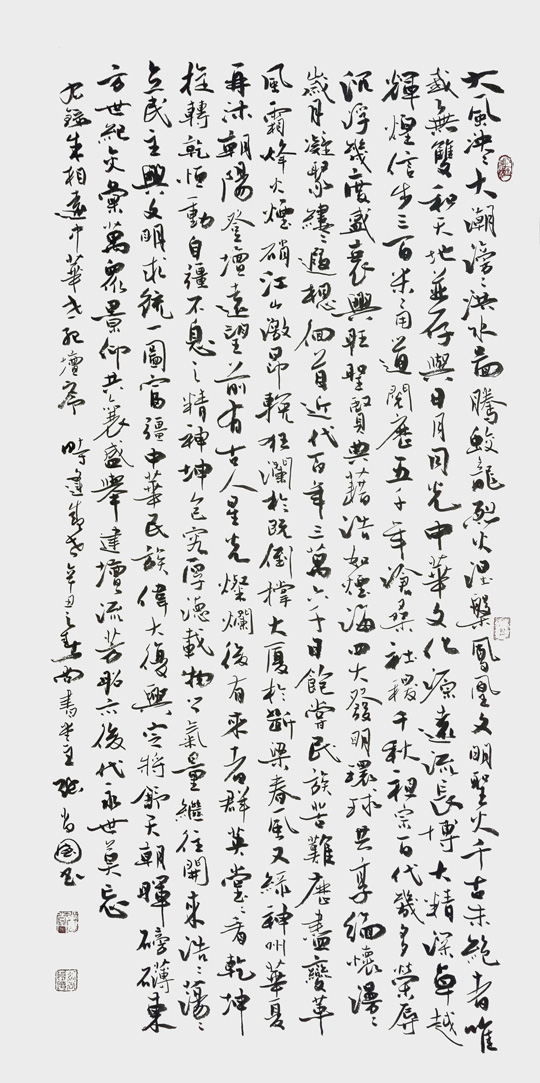 大風泱々大潮滂々洪水圖騰蛟龍烈火涅槃鳳凰文明聖火千古未絕者唯
我無雙和天地並存與日月同光中華文化源遠流長博大精深卓越
輝煌信步三百米甬道閱展五千年滄桑社稷千秋祖宗百代幾多榮辱
沉浮幾度盛衰興旺聖賢典籍浩如煙海四大發明環球共享緬懷漫々
歲月凝聚縷々遐想回首近代百年三萬六千日飽嘗民族苦難歷盡變革
風霜烽火煙硝江山激昂輓狂瀾於既倒撐大廈於斷梁春風又綠神州華夏
再沐朝陽登壇遠望前有古人星光燦爛後有來者群英堂々看乾坤
旋轉乾恒動自彊不息之精神坤包容厚德載物之氣量繼往開來浩々蕩々
立民主興文明求統一圖富彊中華民族偉大復興定將舒天朝暉磅礴東
方世紀交彙萬眾景仰共襄盛舉建壇流芳昭示後代永世莫忘
右錄朱相遠中華世紀壇序 時逢歲次辛丑之春尚書堂主張尚國書